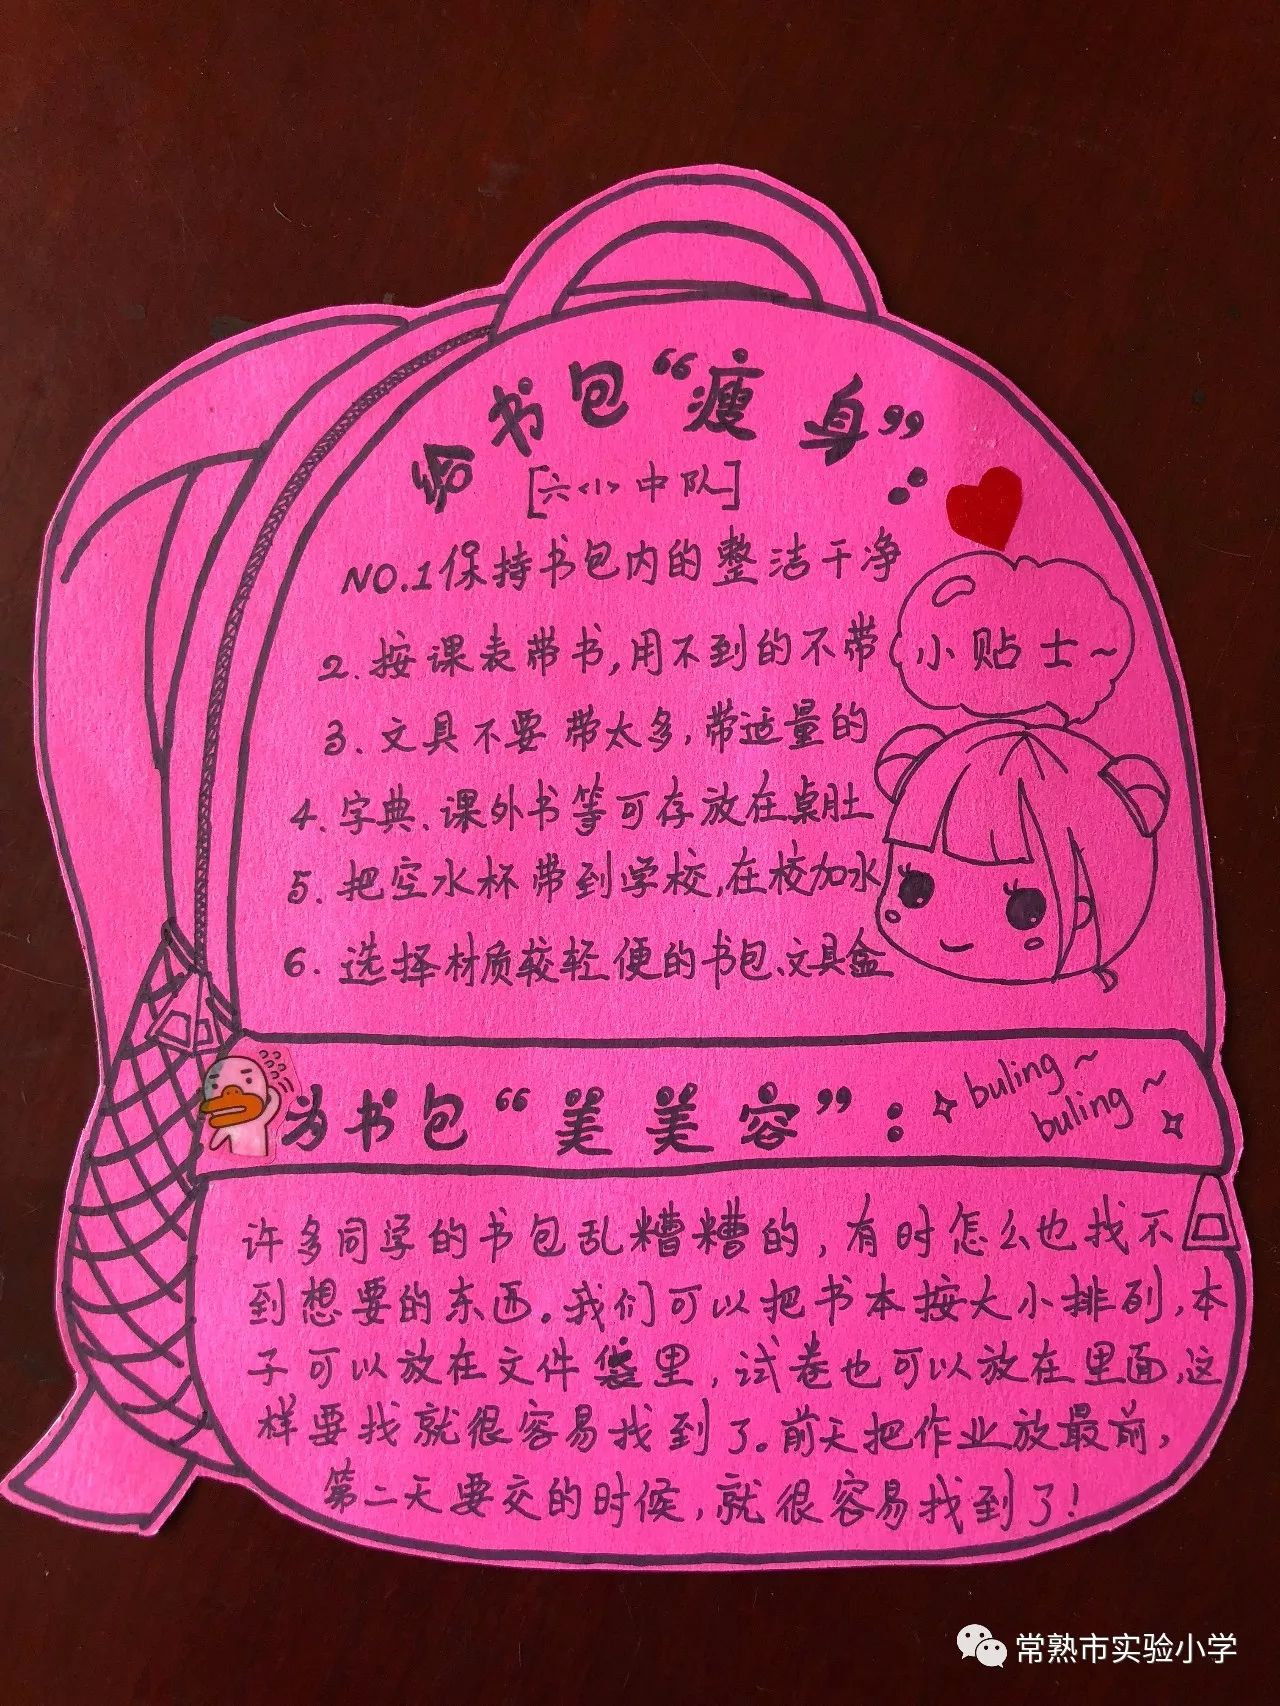 给书包“瘦身”：
[六<1>中队]
NO.1保持书包内的整洁干净
2.按课表带书,用不到的不带
3.文具不要带太多,带适量的
4.字典、课外书等可存放在桌肚
5.把空水杯带到学校,在校加水
6.选择材质较轻便的书包、文具盒
小贴士~
为书包“美美容”：
buling~
buling~
许多同学的书包乱糟糟的,有时怎么也找不
到想要的东西。我们可以把书本按大小排列,本
子可以放在文件袋里,试卷也可以放在里面,这
样要找就很容易找到了。前天把作业放最前,
第二天要交的时候,就很容易找到了!
常熟市实验小学